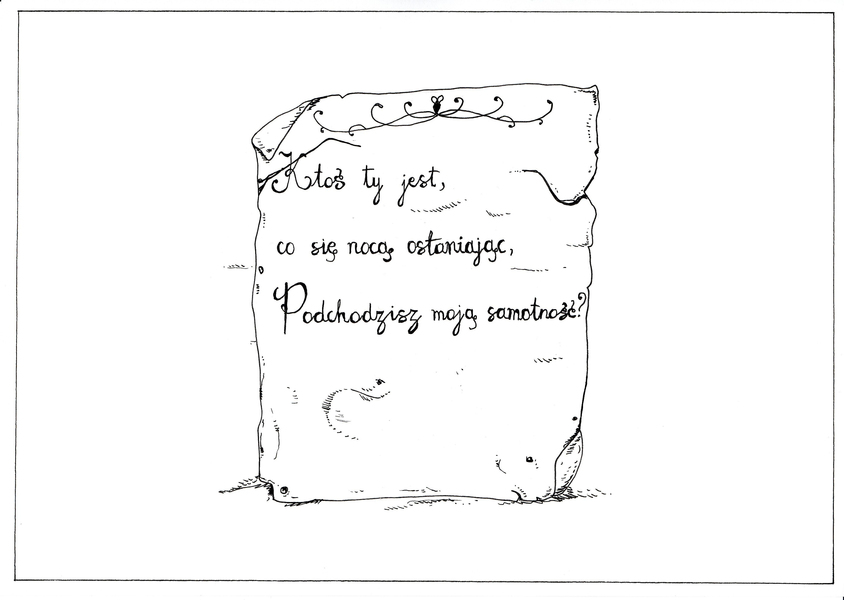 Ktoś ty jest,
co się nocą osłaniając,
Podchodzisz moją samotność?